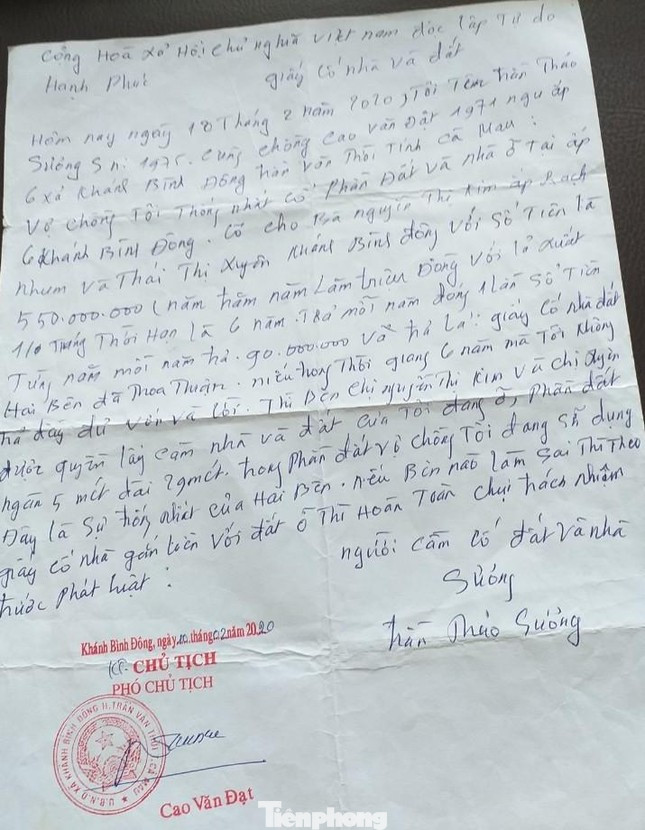 Cộng Hoà Xã Hội chủ nghĩa Việt nam độc lập Tự do
Hạnh Phúc
giấy Cố nhà và đất
Hôm nay ngày 18 Tháng 2 năm 2020, Tôi Tên Trần Thảo
Sương Sn: 1975. Cùng chồng Cao văn Đạt 1971 ngụ ấp
6 xã Khánh Bình Đông Trần văn Thời Tỉnh Cà Mau:
Vợ chồng Tôi Thống nhất Cố phần Đất và nhà ở Tại ấp
6 Khánh Bình Đông. Cố cho Bà nguyễn Thị Kim ấp Rạch
nhum và Thái Thị Xuyên Khánh Bình đông với Số Tiền là
550.000.000 (năm trăm năm Lăm triệu Đồng với lả xuất
Thời Hạn là 6 năm. Trả mỗi năm đóng 1 lần Số Tiền
Từng năm mỗi năm trả. 90.000.000 và trả Lại giấy Cố nhà đất
Hai Bên đã Thoa Thuận. niếu trong Thời giang 6 năm mà Tôi Không
trả đầy đủ vốn và Lời. Thì Bên Chị nguyễn Thị Kim và chị
được quyền lấy Căm nhà và đất của Tôi đang ở, phần đất
ngan 5 mét dài 29mét. trong phần đất vợ chồng Tôi đang Sử dụng
Đây là Sự thống nhất của Hai Bên. niếu Bên nào làm Sai Thì Theo
giấy Cố nhà gắn liền với đất ở Thì Hoàn Toàn chịu trách nhiệm
trước phát luật:
người Cầm Cố đất và nhà
Sương
Trần Thảo Sương
Khánh Bình Đông, ngày 20 tháng 02 năm 2020
KT. CHỦ TỊCH
PHÓ CHỦ TỊCH
U.B.N.D XÃ KHÁNH BÌNH ĐÔNG H.TRẦN VĂN THỜI T.CÀ MAU
Cao Văn Đạt
Tiềnphong